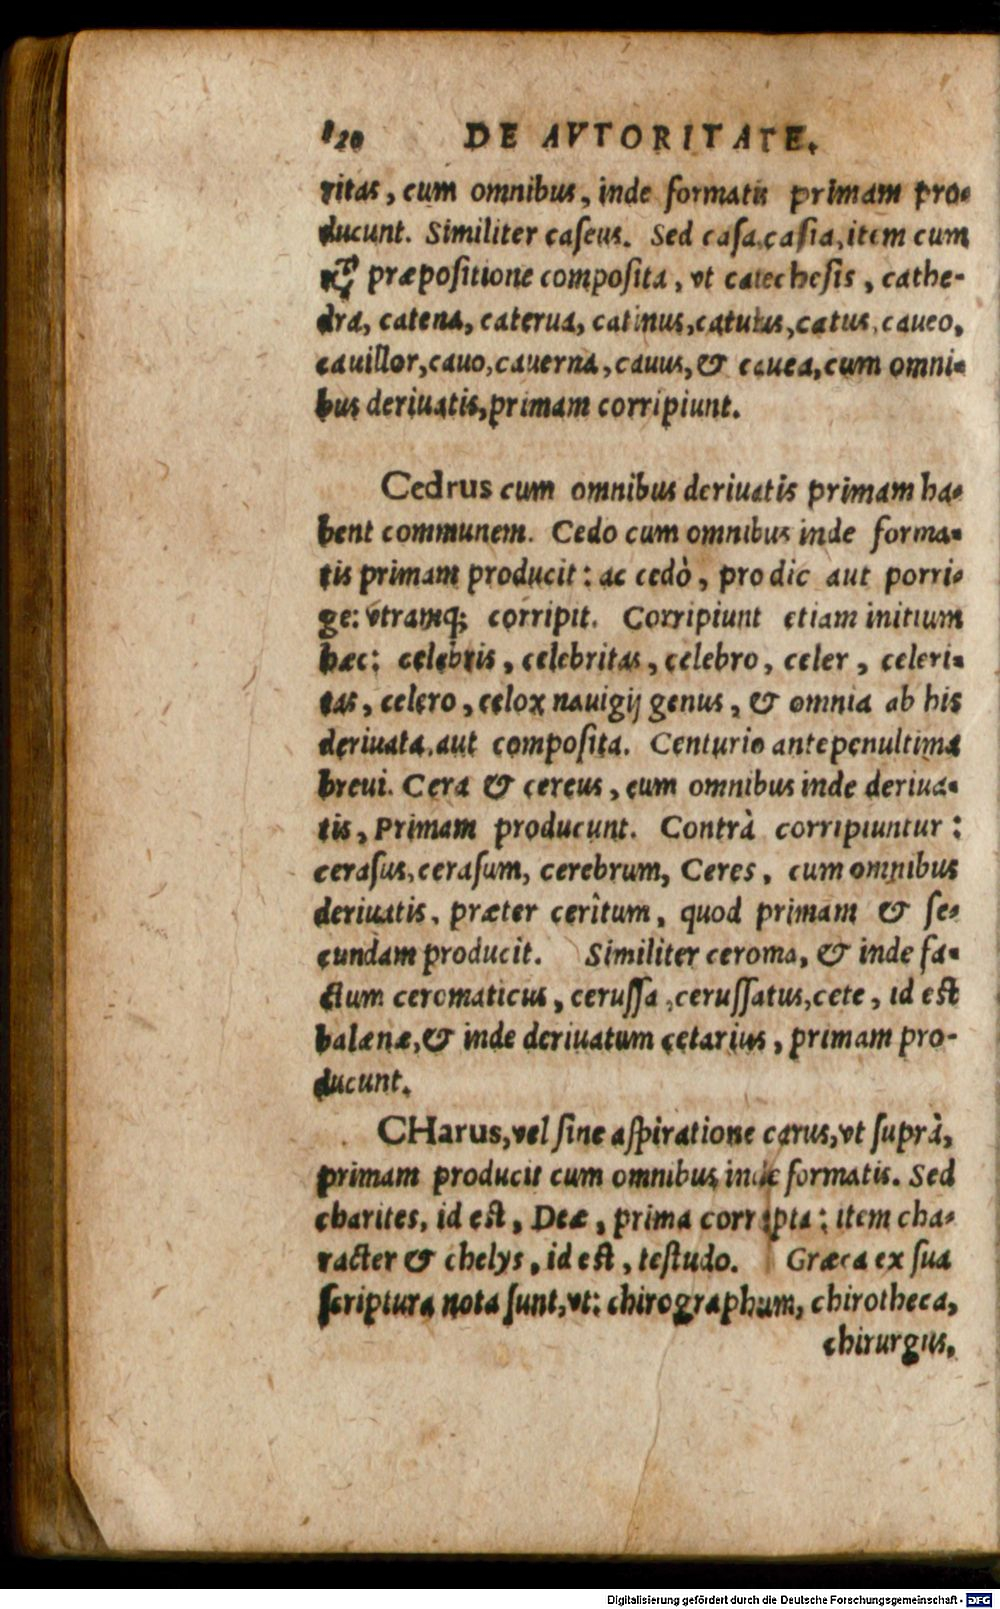 120 DE AVTORITATE.
ritas, cum omnibus, inde formatis primam pro-
ducunt. Similiter caſeus. Sed caſa, caſia, item cum
præpoſitione compoſita, vt catecheſis, cathe-
dra, catena, caterua, catinus, catulus, catus, caueo,
cauillor, cauo, cauerna, cauus, & cauea, cum omni-
bus deriuatis, primam corripiunt.
Cedrus cum omnibus deriuatis primam ha-
bent communem. Cedo cum omnibus inde forma-
tis primam producit: ac cedò, pro dic aut porri-
ge: vtramq; corripit. Corripiunt etiam initium
hæc: celebris, celebritas, celebro, celer, celeri-
tas, celero, celox nauigij genus, & omnia ab his
deriuata, aut compoſita. Centurio antepenultima
breui. Cera & cereus, cum omnibus inde deriua-
tis, Primam producunt. Contrà corripiuntur:
ceraſus, ceraſum, cerebrum, Ceres, cum omnibus
deriuatis, præter cerîtum, quod primam & ſe-
cundam producit. Similiter ceroma, & inde fa-
ctum ceromaticus, ceruſſa, ceruſſatus, cete, id eſt
balænæ, & inde deriuatum cetarius, primam pro-
ducunt.
CHarus, vel ſine aſpiratione carus, vt ſuprà,
primam producit cum omnibus inde formatis. Sed
charites, id eſt, Deæ, prima correpta: item cha-
racter & chelys, id eſt, teſtudo. Græca ex ſua
ſcriptura nota ſunt, vt: chirographum, chirotheca,
chirurgus,
Digitalisierung gefördert durch die Deutsche Forschungsgemeinschaft - DFG